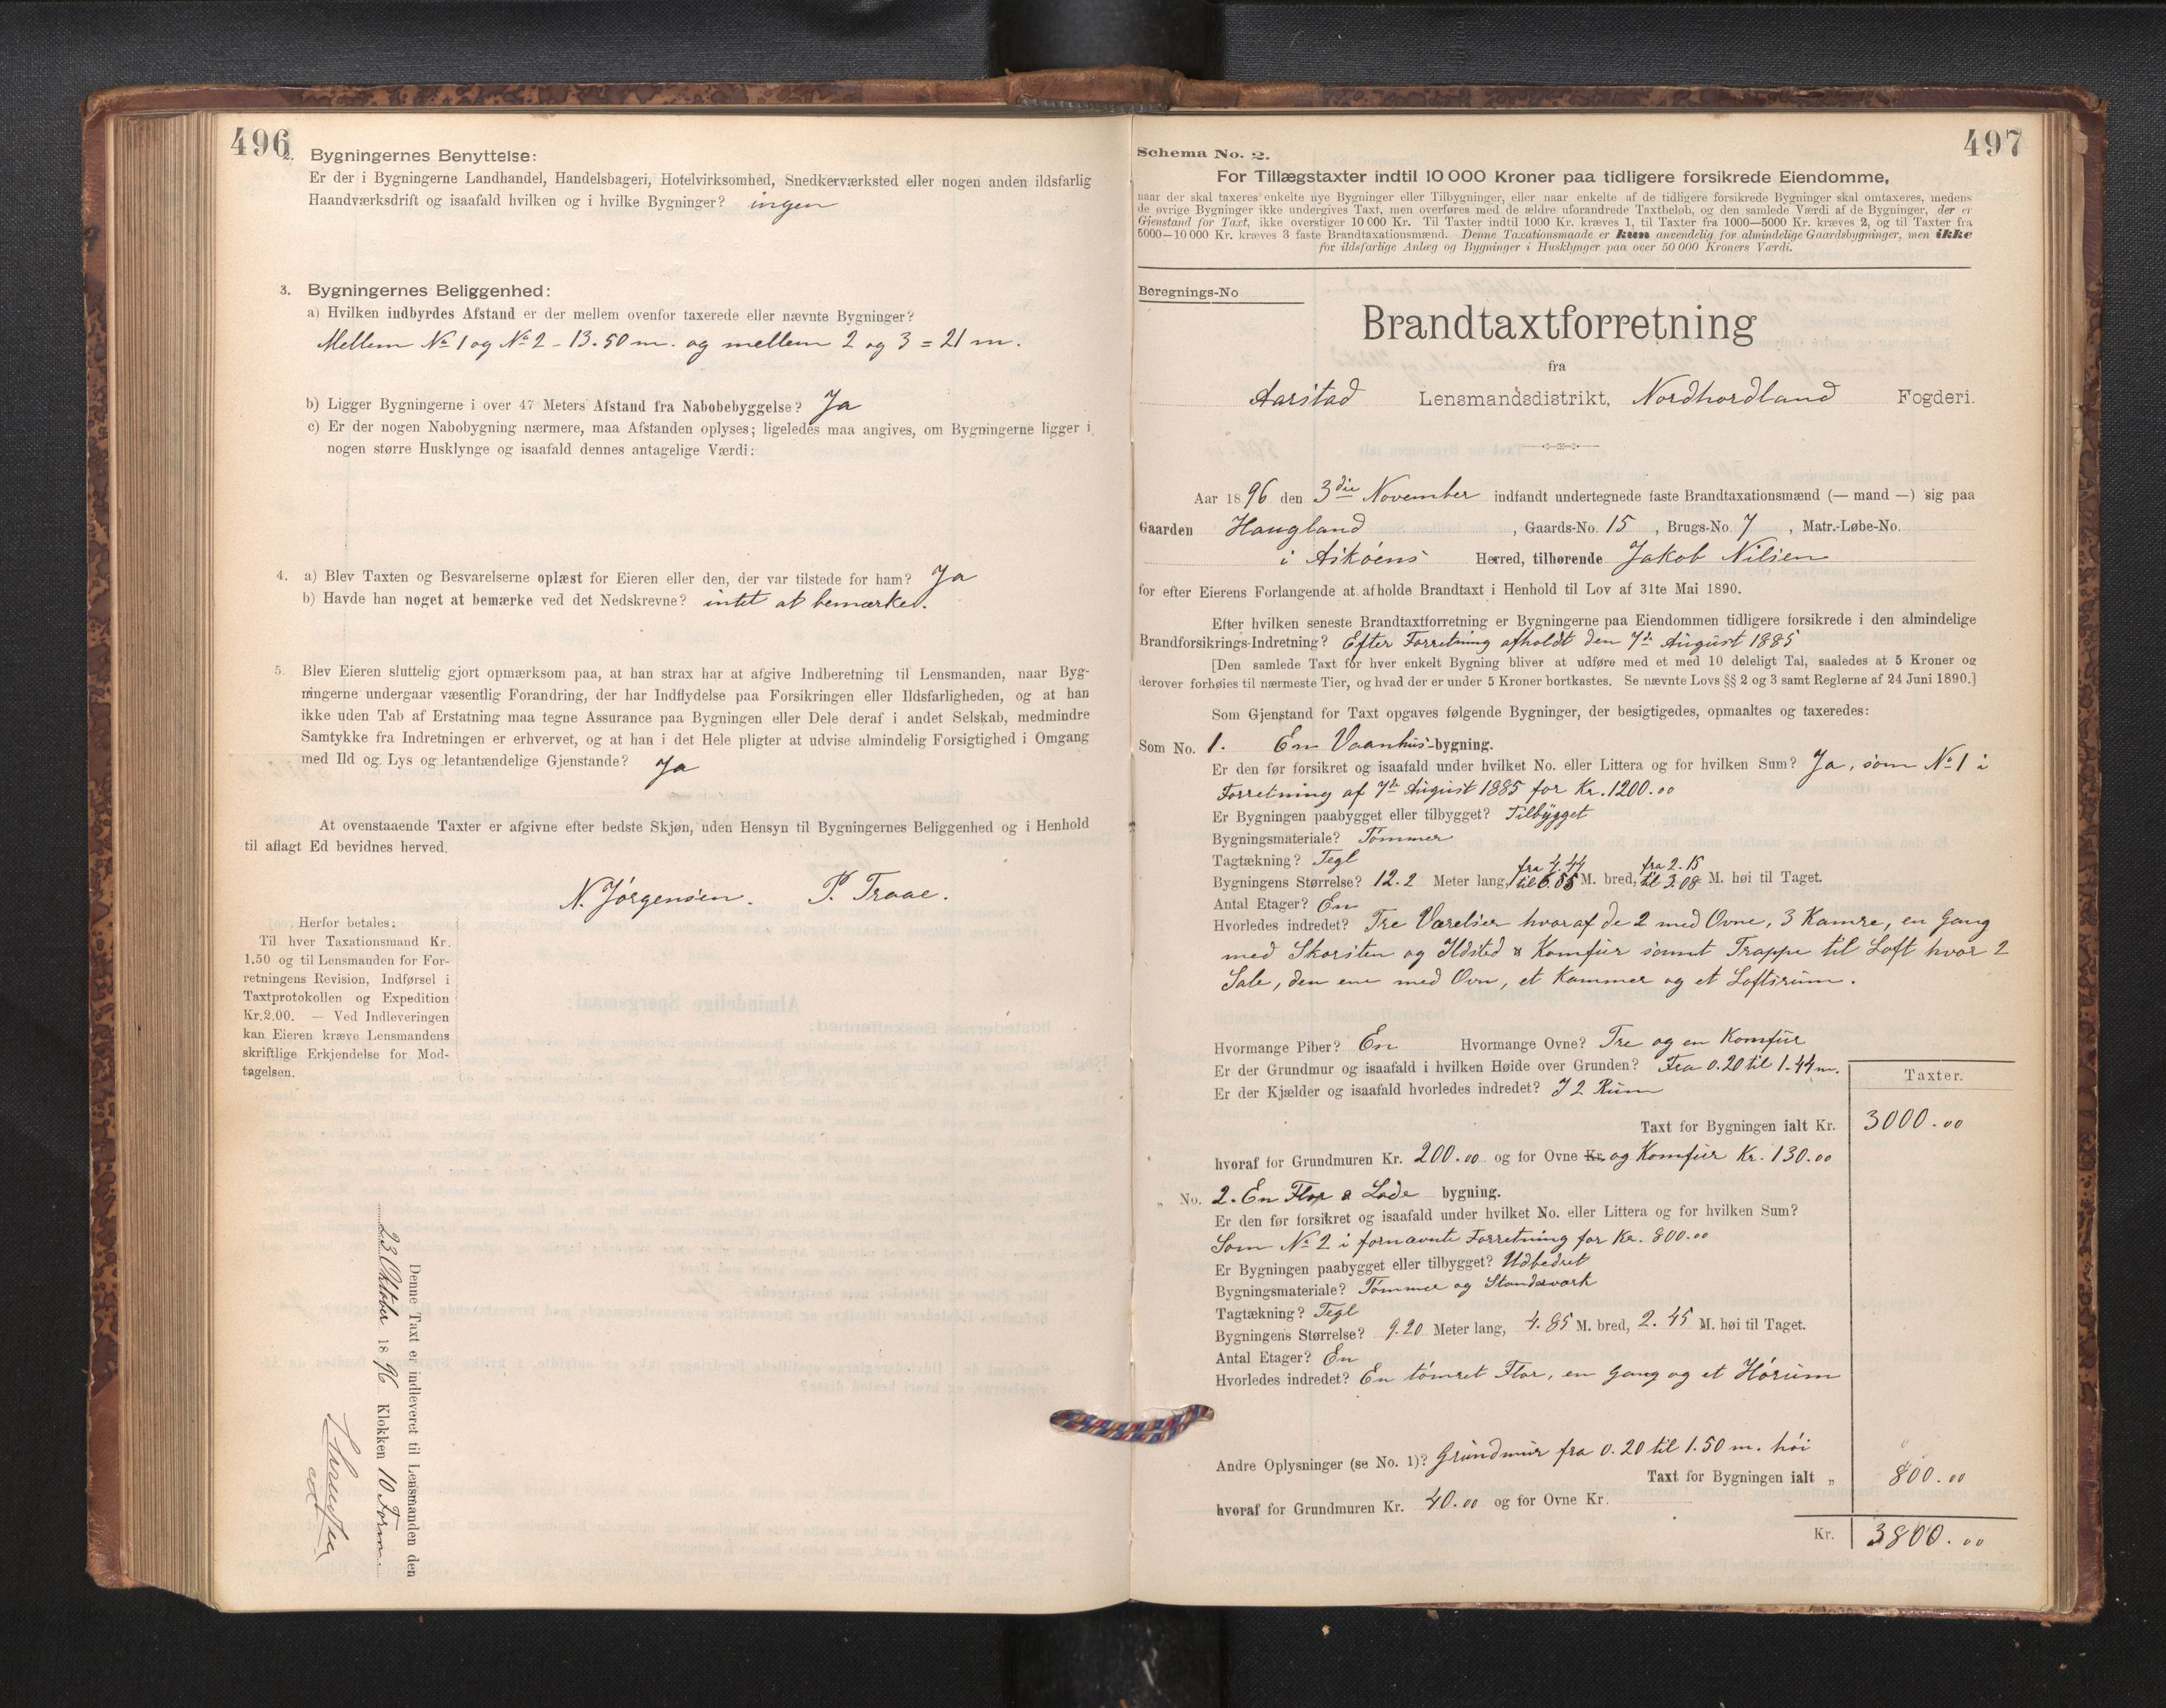 496
2. Bygningernes Benyttelse:
Er der i Bygningerne Landhandel, Handelsbageri, Hotelvirksomhed, Snedkerværksted eller nogen anden ildsfarlig
Haandværksdrift og isaafald hvilken og i hvilke Bygninger? ingen
3. Bygningernes Beliggenhed:
a) Hvilken indbyrdes Afstand er der mellem ovenfor taxerede eller nævnte Bygninger?
Mellem No 1 og No 2 - 13.50 m. og mellem 2 og 3 = 21 m.
b) Ligger Bygningerne i over 47 Meters Afstand fra Nabobebyggelse? Ja
c) Er der nogen Nabobygning nærmere, maa Afstanden oplyses; ligeledes maa angives, om Bygningerne ligger i
nogen større Husklynge og isaafald dennes antagelige Værdi:
4. a) Blev Taxten og Besvarelserne oplæst for Eieren eller den, der var tilstede for ham? Ja
b) Havde han noget at bemærke ved det Nedskrevne? intet at bemærke.
5. Blev Eieren sluttelig gjort opmærksom paa, at han strax har at afgive Indberetning til Lensmanden, naar Byg-
ningerne undergaar væsentlig Forandring, der har Indflydelse paa Forsikringen eller Ildsfarligheden, og at han
ikke uden Tab af Erstatning maa tegne Assurance paa Bygningen eller Dele deraf i andet Selskab, medmindre
Samtykke fra Indretningen er erhvervet, og at han i det Hele pligter at udvise almindelig Forsigtighed i Omgang
med Ild og Lys og letantændelige Gjenstande? Ja
At ovenstaaende Taxter er afgivne efter bedste Skjøn, uden Hensyn til Bygningernes Beliggenhed og i Henhold
til aflagt Ed bevidnes herved.
N. Jørgensen. P. Traae.
Herfor betales:
Til hver Taxationsmand Kr.
1.50 og til Lensmanden for For-
retningens Revision, Indførsel i
Taxtprotokollen og Expedition
Kr. 2.00. — Ved Indleveringen
kan Eieren kræve Lensmandens
skriftlige Erkjendelse for Mod-
tagelsen.
Denne Taxt er indleveret til Lensmanden den
23 Oktober 1896 Klokken 10 Form
497
Schema No. 2.
For Tillægstaxter indtil 10 000 Kroner paa tidligere forsikrede Eiendomme,
naar der skal taxeres enkelte nye Bygninger eller Tilbygninger, eller naar enkelte af de tidligere forsikrede Bygninger skal omtaxeres, medens
de øvrige Bygninger ikke undergives Taxt, men overføres med de ældre uforandrede Taxtbeløb, og den samlede Værdi af de Bygninger, der er
Gjenstand for Taxt, ikke overstiger 10 000 Kr. Til Taxter indtil 1000 Kr. kræves 1, til Taxter fra 1000—5000 Kr. kræves 2, og til Taxter fra
5000—10 000 Kr. kræves 3 faste Brandtaxationsmænd. Denne Taxationsmaade er kun anvendelig for almindelige Gaardsbygninger, men ikke
for ildsfarlige Anlæg og Bygninger i Husklynger paa over 50 000 Kroners Værdi.
Beregnings-No
Brandtaxtforretning
fra
Aarstad Lensmandsdistrikt, Nordhordland Fogderi.
Aar 1896 den 3die November indfandt undertegnede faste Brandtaxationsmænd (— mand —) sig paa
Gaarden Haugland, Gaards-No. 15, Brugs-No. 7, Matr.-Løbe-No.
i Askøens Herred, tilhørende Jakob Nilsen
for efter Eierens Forlangende at afholde Brandtaxt i Henhold til Lov af 31te Mai 1890.
Efter hvilken seneste Brandtaxtforretning er Bygningerne paa Eiendommen tidligere forsikrede i den almindelige
Brandforsikrings-Indretning? Efter Forretning afholdt den 7de August 1885
[Den samlede Taxt for hver enkelt Bygning bliver at udføre med et med 10 deleligt Tal, saaledes at 5 Kroner og
derover forhøies til nærmeste Tier, og hvad der er under 5 Kroner bortkastes. Se nævnte Lovs §§ 2 og 3 samt Reglerne af 24 Juni 1890.]
Som Gjenstand for Taxt opgaves følgende Bygninger, der besigtigedes, opmaaltes og taxeredes:
Som No. 1. En Vaanhus-bygning.
Er den før forsikret og isaafald under hvilket No. eller Littera og for hvilken Sum? Ja, som No 1 i
Forretning af 7de August 1885 for Kr. 1200.00
Er Bygningen paabygget eller tilbygget? Tilbygget
Bygningsmateriale? Tømmer
Tagtækning? Tegl
Bygningens Størrelse? 12.2 Meter lang, fra 4.44 til 6.55 M. bred, fra 2.15 til 3.08 M. høi til Taget.
Antal Etager? En
Hvorledes indredet? Tre Værelser hvoraf de 2 med Ovne, 3 Kamre, en Gang
med Skorsten og Ildsted & Komfur samt Trappe til Loft hvor 2
Sale, den ene med Ovn, et Kammer og et Loftsrum.
Hvormange Piber? En Hvormange Ovne? Tre og en Komfur
Er der Grundmur og isaafald i hvilken Høide over Grunden? Fra 0.20 til 1.44 m.
Er der Kjælder og isaafald hvorledes indredet? I 2 Rum
Taxter.
Taxt for Bygningen ialt Kr. 3000.00
hvoraf for Grundmuren Kr. 200.00 og for Ovne Kr. og Komfur Kr. 130.00
„ No. 2. En Flor & Lade bygning.
Er den før forsikret og isaafald under hvilket No. eller Littera og for hvilken Sum?
Som No 2 i fornævnte Forretning for Kr. 800.00
Er Bygningen paabygget eller tilbygget? Udbedret
Bygningsmateriale? Tømmer og Standerværk
Tagtækning? Tegl
Bygningens Størrelse? 9.20 Meter lang, 4.85 M. bred, 2.45 M. høi til Taget.
Antal Etager? En
Hvorledes indredet? En tømret Flor, en Gang og et Hørum
Andre Oplysninger (se No. 1)? Grundmur fra 0.20 til 1.50 m. høi
Taxt for Bygningen ialt „ 800.00
hvoraf for Grundmuren Kr. 40.00 og for Ovne Kr.
Kr. 3800.00